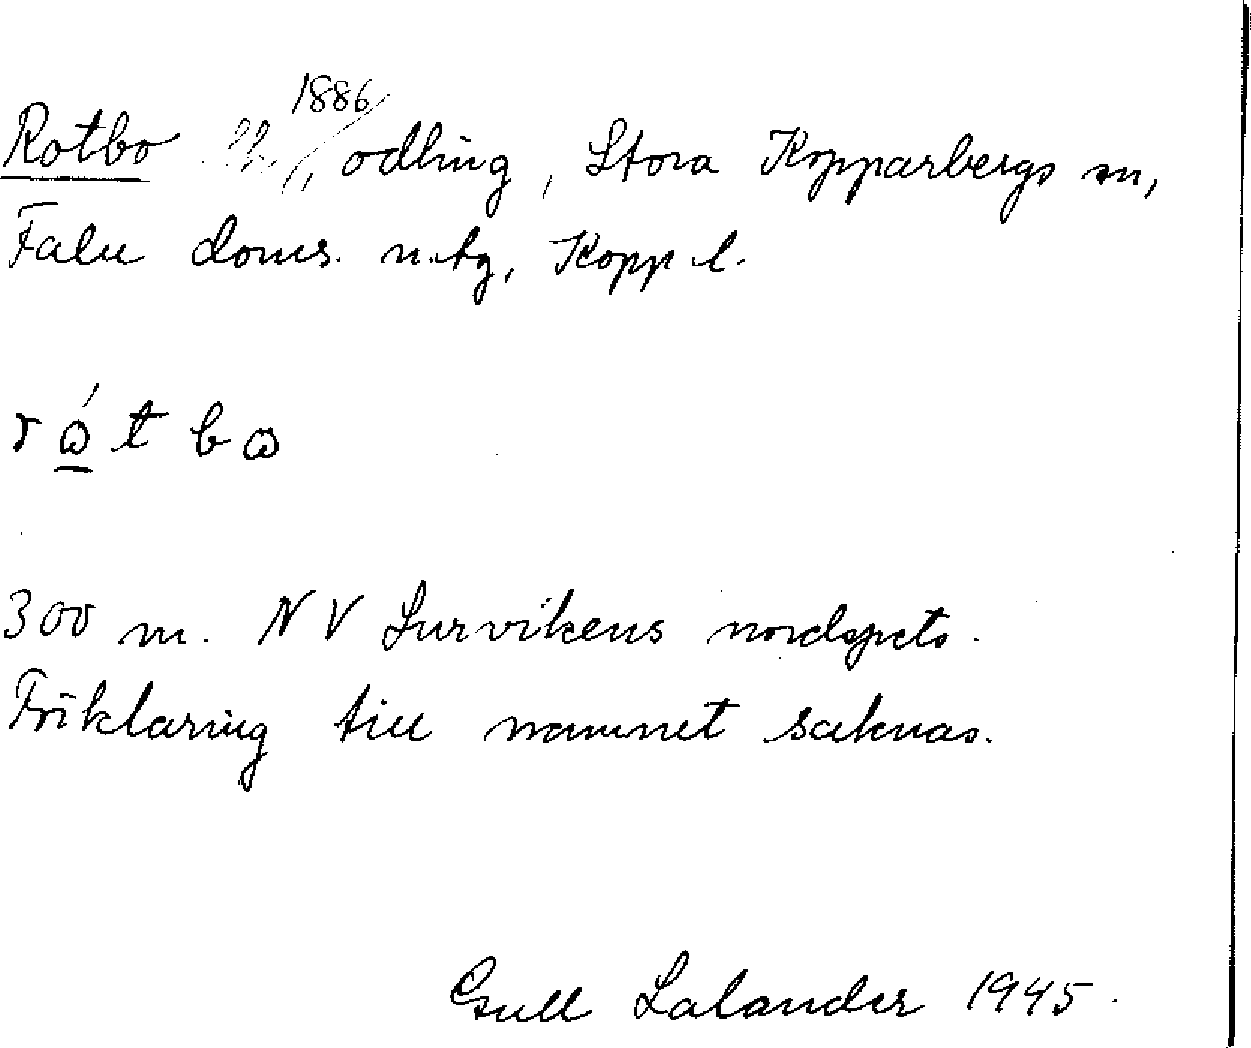 1886
Rotbo odling, Stora Kopparbergs sn,
Falu doms. n. tg, Kopp l.
rώ̲tbω
300 m. NV Lurvikens nordspets.
Förklaring till namnet saknas.
Gull Lalander 1945.